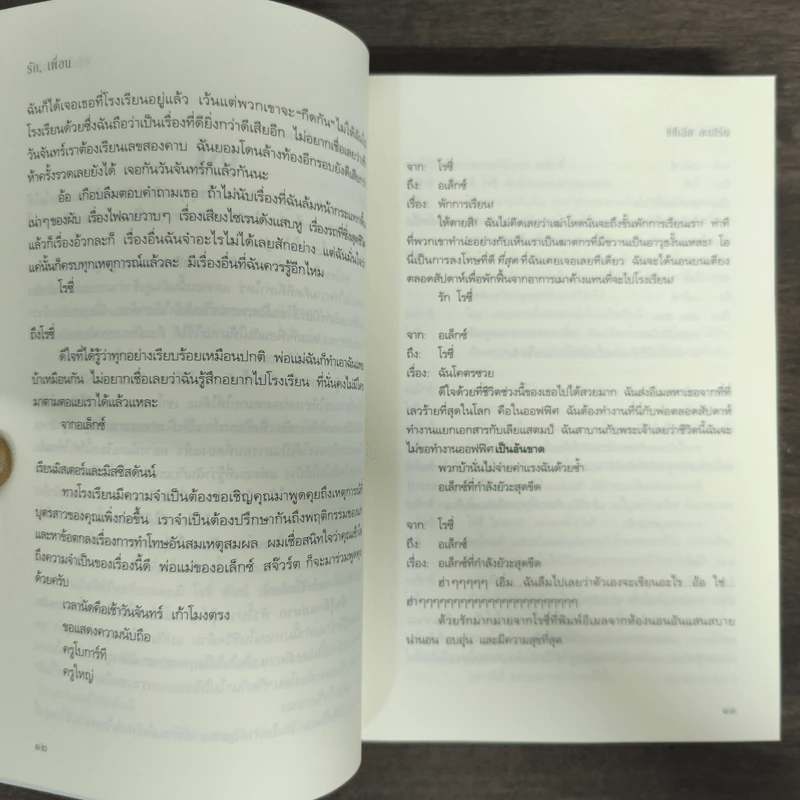 รัก, เพื่อน
ฉันก็ได้เจอเธอที่โรงเรียนอยู่แล้ว เว้นแต่พวกเขาจะ "กีดกัน" ไม่ให้ฉัน
โรงเรียนด้วยซึ่งฉันถือว่าเป็นเรื่องที่ดียิ่งกว่าดีเสียอีก ไม่อยากเชื่อเลยว่า
วันจันทร์เราต้องเรียนเลขสองคาบ ฉันยอมโดนล้างท้องอีกรอบยังดีเสีย
ห้าครั้งรวดเลยยังได้ เจอกันวันจันทร์ก็แล้วกันนะ
อ้อ เกือบลืมตอบคำถามเธอ ถ้าไม่นับเรื่องที่ฉันล้มหน้ากระแทก
เน่าๆของผับ เรื่องไฟฉายวาบๆ เรื่องเสียงไซเรนดังแสบหู เรื่องรถที่ซิ่งสุดชีวิต
แล้วก็เรื่องอ้วกละก็ เรื่องอื่นฉันจำอะไรไม่ได้เลยสักอย่าง แต่ฉันมั่นใจว่า
แค่นั้นก็ครบทุกเหตุการณ์แล้วละ มีเรื่องอื่นที่ฉันควรรู้อีกไหม
โรซี่
ถึงโรซี่
ดีใจที่ได้รู้ว่าทุกอย่างเรียบร้อยเหมือนปกติ พ่อแม่ฉันก็ทำเอาฉัน
บ้าเหมือนกัน ไม่อยากเชื่อเลยว่าฉันรู้สึกอยากไปโรงเรียน ที่นั่นคงไม่มี
มาตามตอแยเราได้แล้วแหละ
จากอเล็กซ์
เรียนมิสเตอร์และมิสซิสดันน์
ทางโรงเรียนมีความจำเป็นต้องขอเชิญคุณมาพูดคุยถึงเหตุการณ์ที่
บุตรสาวของคุณเพิ่งก่อขึ้น เราจำเป็นต้องปรึกษากันถึงพฤติกรรมของ
และหาข้อตกลงเรื่องการทำโทษอันสมเหตุสมผล ผมเชื่อสนิทใจว่าคุณเข้าใจ
ถึงความจำเป็นของเรื่องนี้ดี พ่อแม่ของอเล็กซ์ สจ๊วร์ต ก็จะมาร่วมพูดคุย
ด้วยครับ
เวลานัดคือเช้าวันจันทร์ เก้าโมงตรง
ขอแสดงความนับถือ
ครูโบการ์ที
ครูใหญ่
๑๒
จาก: โรซี่
ถึง: อเล็กซ์
เรื่อง: พักการเรียน!
ให้ตายสิ! ฉันไม่คิดเลยว่าเฒ่าโหดนั่นจะถึงขั้นพักการเรียนเรา! ทำที
ที่พวกเขาทำน่ะอย่างกับเห็นเราเป็นฆาตกรที่มีขวานเป็นอาวุธงั้นแหละ! โอ
นี่เป็นการลงโทษที่ดี ที่สุด ที่ฉันเคยเจอเลยทีเดียว ฉันจะได้นอนบนเตียง
ตลอดสัปดาห์เพื่อพักฟื้นจากอาการเมาค้างแทนที่จะไปโรงเรียน!
รัก โรซี่
จาก: อเล็กซ์
ถึง: โรซี่
เรื่อง: ฉันโคตรซวย
ดีใจด้วยที่ชีวิตช่วงนี้ของเธอไปได้สวยมาก ฉันส่งอีเมลหาเธอจากที่ที่
เลวร้ายที่สุดในโลก คือในออฟฟิศ ฉันต้องทำงานที่นี่กับพ่อตลอดสัปดาห์
ทำงานแยกเอกสารกับเลียแสตมป์ ฉันสาบานกับพระเจ้าเลยว่าชีวิตนี้ฉันจะ
ไม่ขอทำงานออฟฟิศเป็นอันขาด
พวกบ้านั่นไม่จ่ายค่าแรงฉันด้วยซ้ำ
อเล็กซ์ที่กำลังยัวะสุดขีด
จาก: โรซี่
ถึง: อเล็กซ์
เรื่อง: อเล็กซ์ที่กำลังยัวะสุดขีด
ฮ่าๆๆๆๆๆ เอิ่ม... ฉันลืมไปเลยว่าตัวเองจะเขียนอะไร... อ้อ ใช่...
ฮ่าๆๆๆๆๆๆๆๆๆๆๆๆๆๆๆๆๆๆๆๆๆ
ด้วยรักมากมายจากโรซี่ที่พิมพ์อีเมลจากห้องนอนอันแสนสบาย
น่านอน อบอุ่น และมีความสุขที่สุด
๑๓